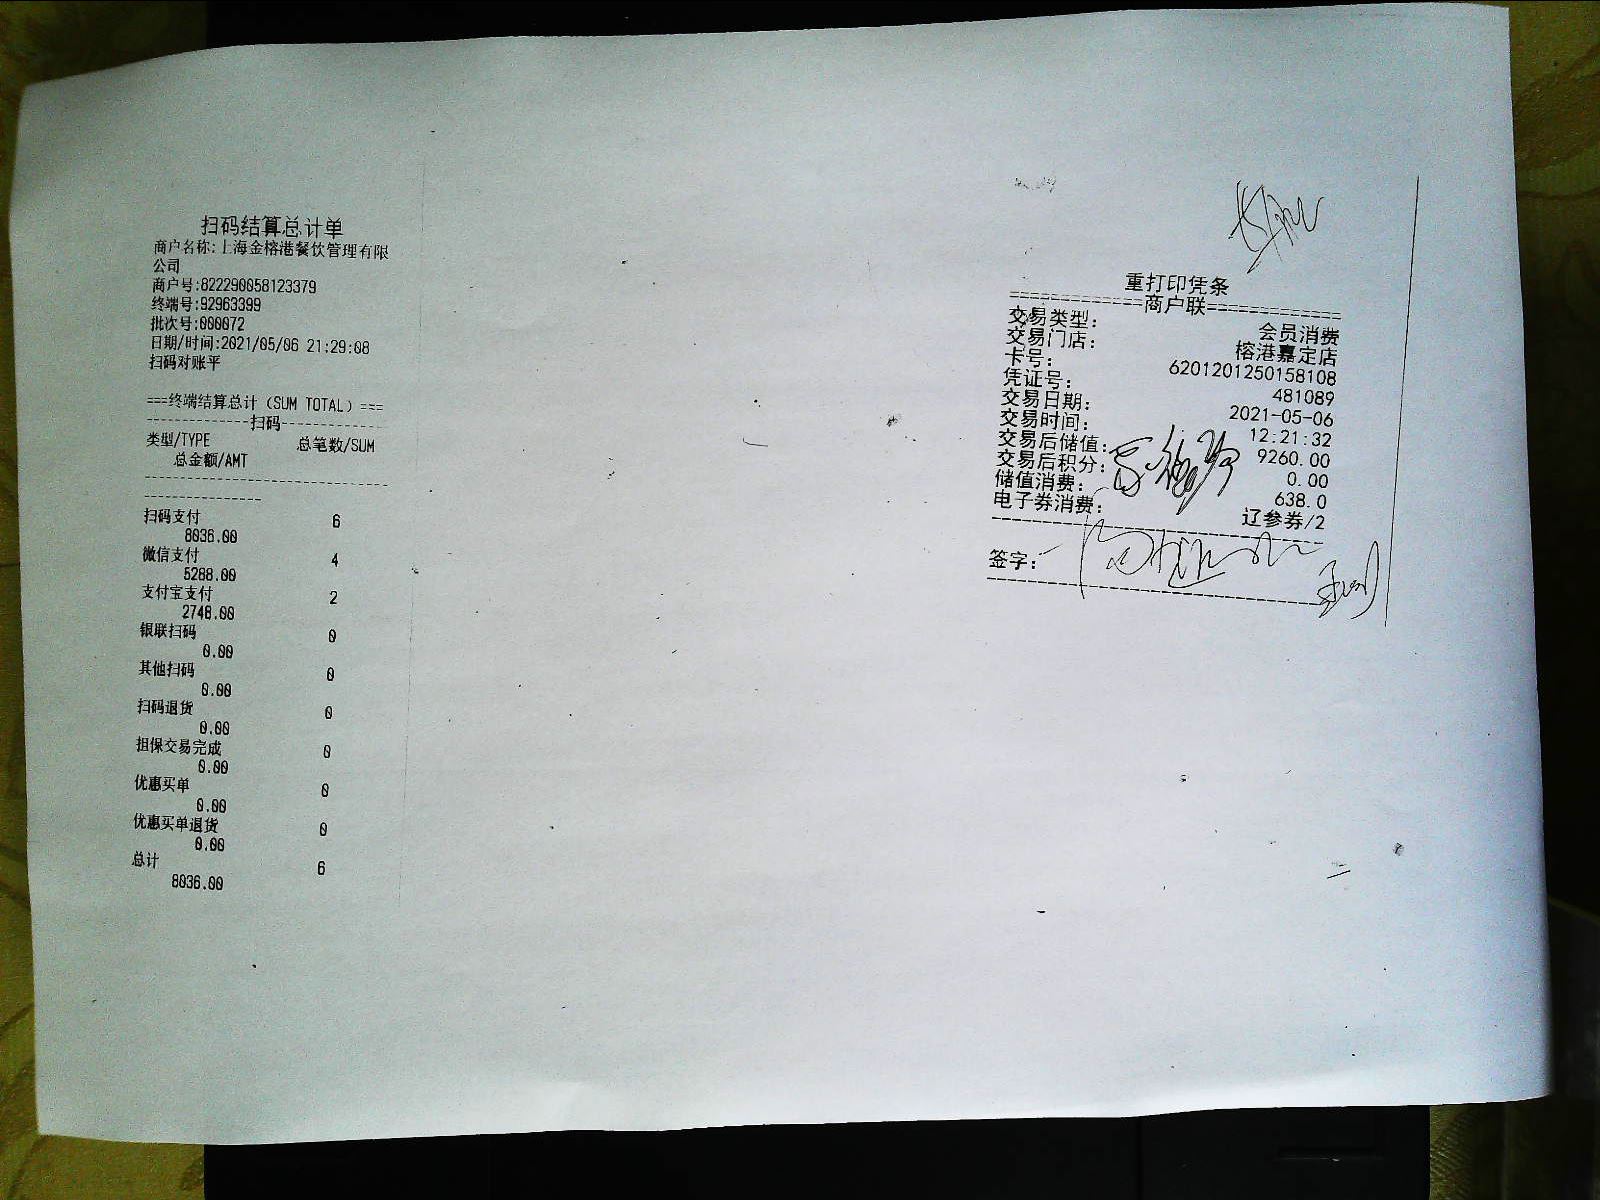 扫码结算总计单
商户名称:上海金榕港餐饮管理有限
公司
商户号:822290058123379
终端号:92963399
批次号:000072
日期/时间:2021/05/06 21:29:08
扫码对账平
===终端结算总计（SUM TOTAL）===
---------------扫码---------------
类型/TYPE 总笔数/SUM
总金额/AMT
扫码支付 6
8036.00
微信支付 4
5288.00
支付宝支付 2
2748.00
银联扫码 0
0.00
其他扫码 0
0.00
扫码退货 0
0.00
担保交易完成 0
0.00
优惠买单 0
0.00
优惠买单退货 0
0.00
总计 6
8036.00
重打印凭条
=============商户联=============
交易类型: 会员消费
交易门店: 榕港嘉定店
卡号: 6201201250158108
凭证号: 481089
交易日期: 2021-05-06
交易时间: 12:21:32
交易后储值: 9260.00
交易后积分: 0.00
储值消费: 638.0
电子券消费: 辽参券/2
签字: